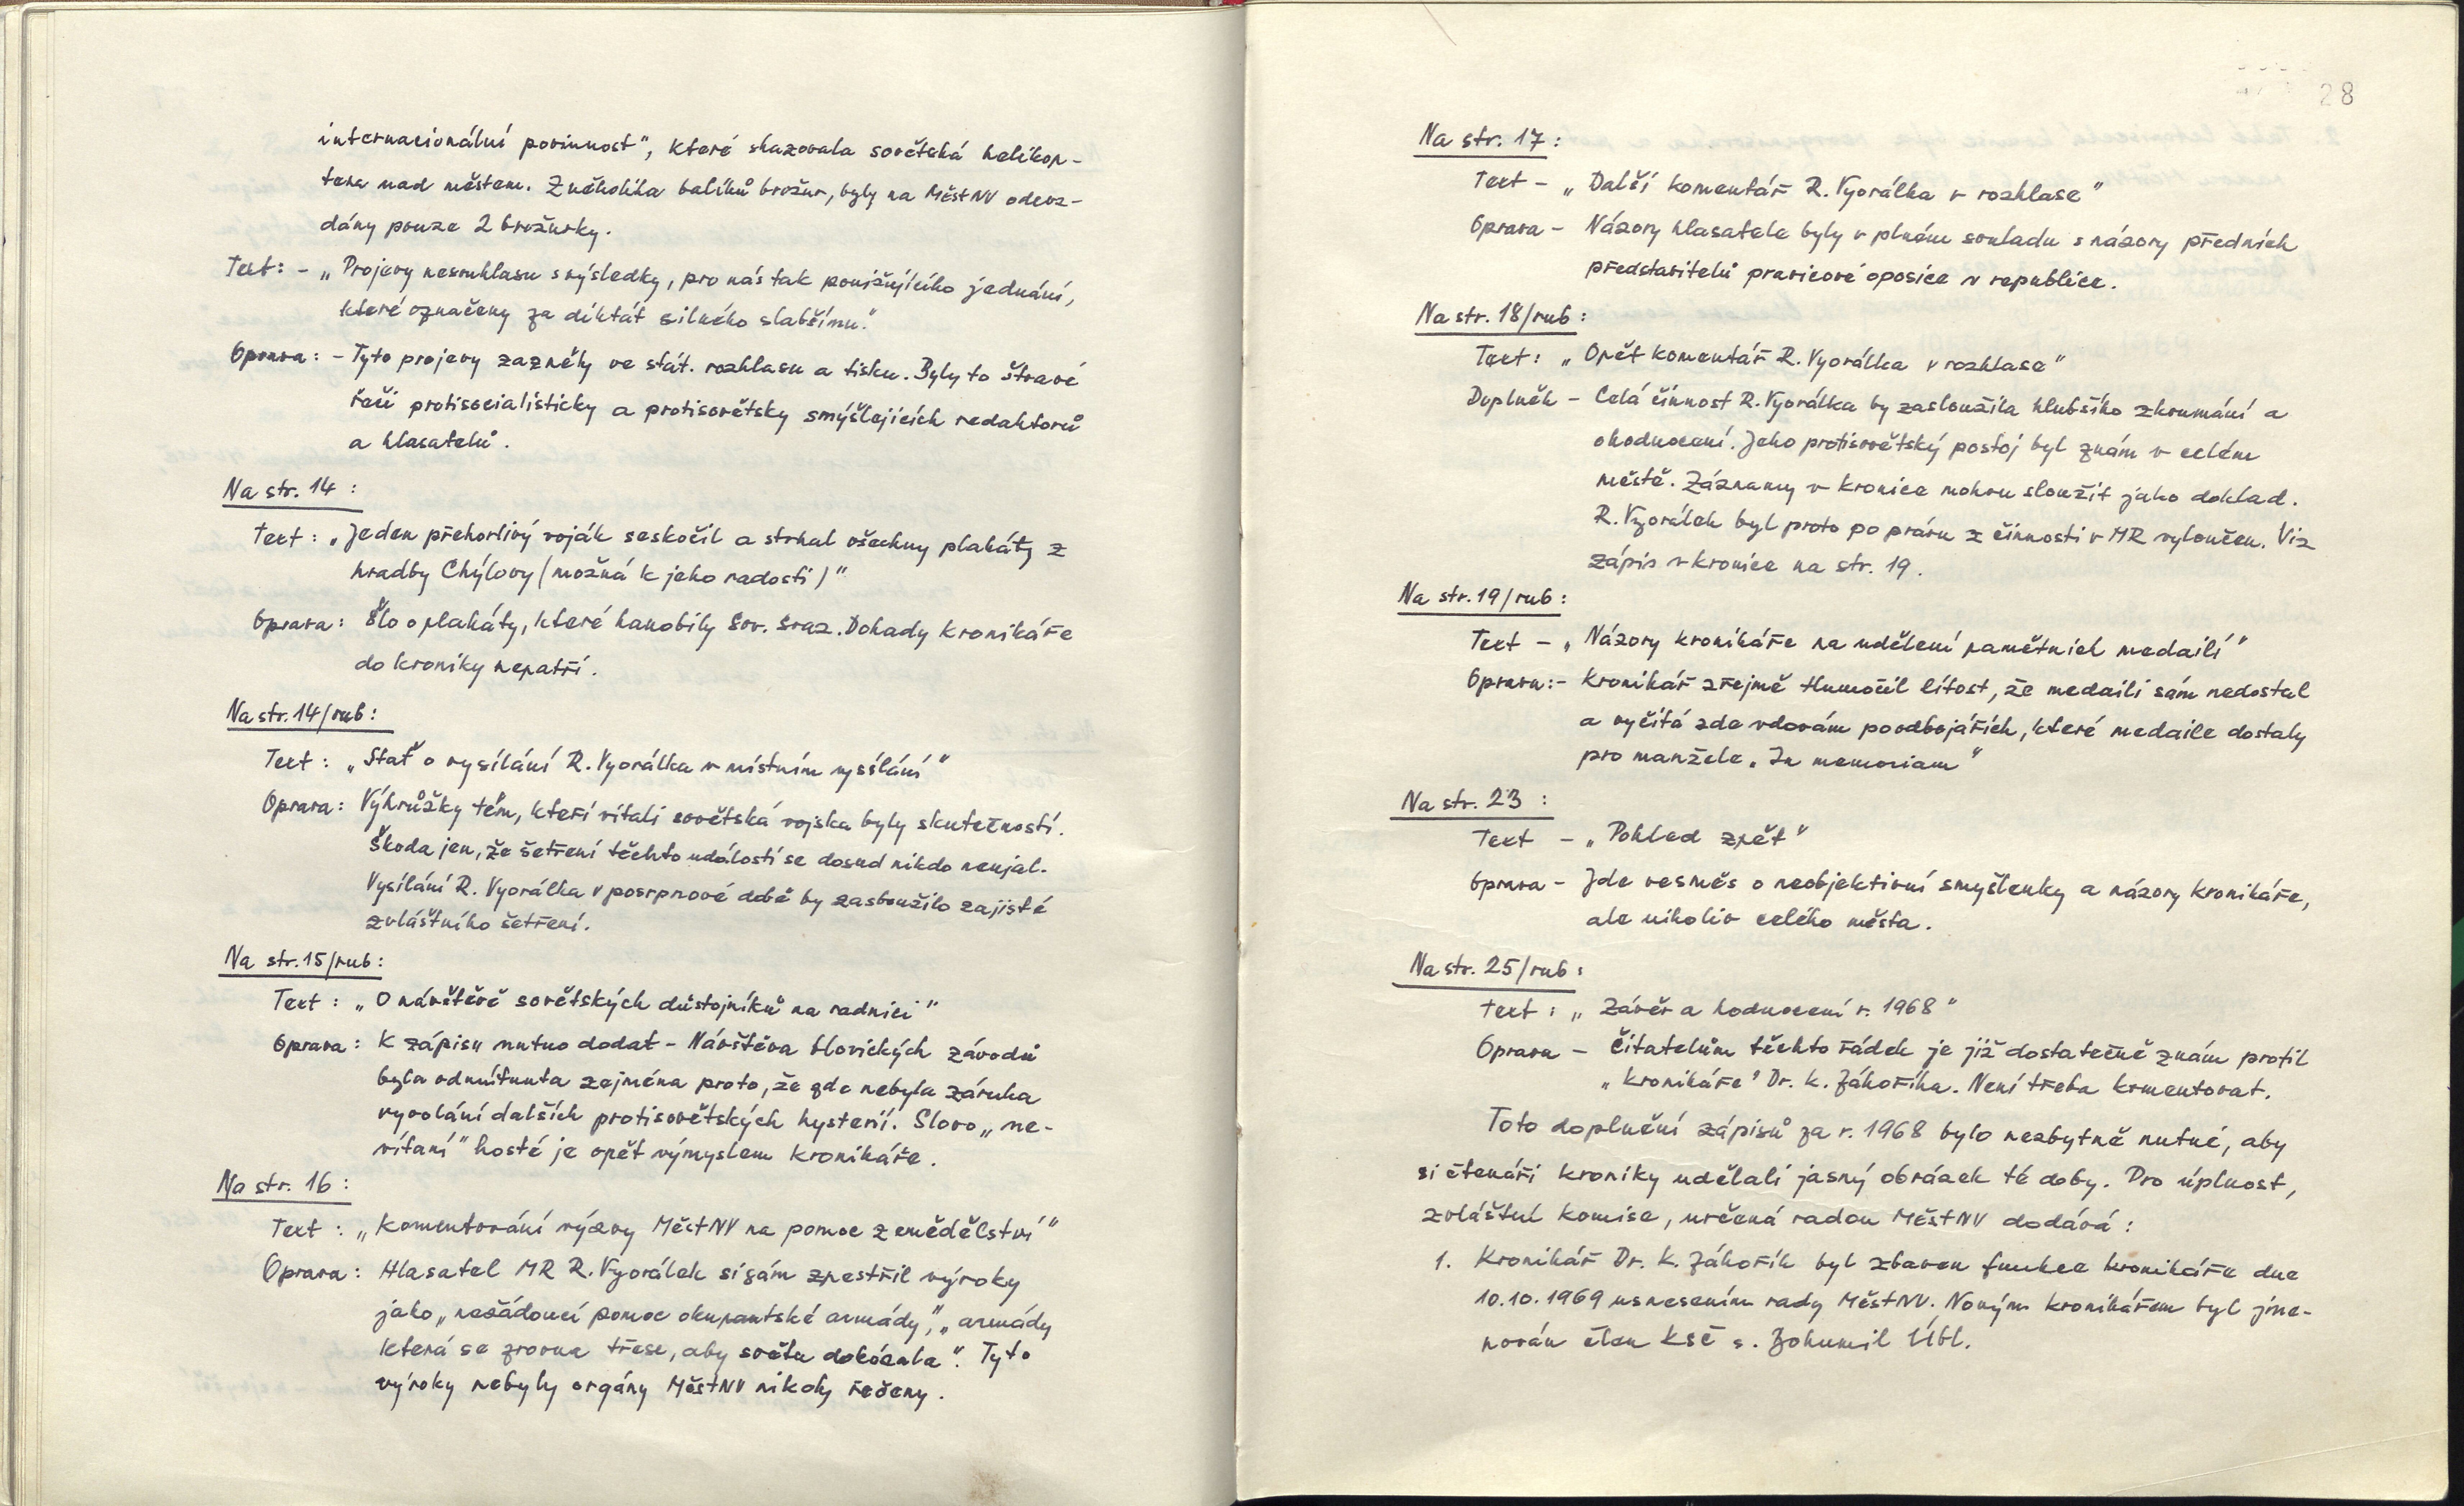 internacionální povinnost", které shazovala sovětská helikop-
tera nad městem. Z několika balíků brožur, byly na MěstNV odevz-
dány pouze 2 brožurky.
Text: - „Projevy nesouhlasu s výsledky, pro nás tak ponižujícího jednání,
které označeny za diktát silného slabšímu."
Oprava: - Tyto projevy zazněly ve stát. rozhlasu a tisku. Byly to štvavé
řeči protisocialisticky a protisovětsky smýšlejících redaktorů
a hlasatelů.
Na str. 14 :
Text : „Jeden přehorlivý voják seskočil a strhal všechny plakáty z
hradby Chýlovy (možná k jeho radosti)"
Oprava: Šlo o plakáty, které hanobily Sov. svaz. Dohady kronikáře
do kroniky nepatří.
Na str. 14/rub :
Text : „Stať o vysílání R. Vyorálka v místním vysílání"
Oprava: Výhrůžky těm, kteří vítali sovětská vojska byly skutečností.
Škoda jen, že šetření těchto událostí se dosud nikdo neujal.
Vysílání R. Vyorálka v posrpnové době by zasloužilo zajisté
zvláštního šetření.
Na str. 15/rub :
Text : „O návštěvě sovětských důstojníků na radnici"
Oprava: K zápisu nutno dodat - Návštěva slovických závodů
byla odmítnuta zejména proto, že zde nebyla záruka
vyvolání dalších protisovětských hysterií. Slovo „ne-
vítaní" hosté je opět výmyslem kronikáře.
Na str. 16 :
Text : „Komentování výzvy MěstNV na pomoc zemědělství"
Oprava: Hlasatel MR R. Vyorálek si sám zpestřil výroky
jako „nežádoucí pomoc okupantské armády", „armády
která se zrovna třese, aby světu dokázala". Tyto
výroky nebyly orgány MěstNV nikdy řečeny.
28
Na str. 17 :
Text - „Další komentář R. Vyorálka v rozhlase"
Oprava - Názory hlasatele byly v plném souladu s názory předních
představitelů pravicové oposice v republice.
Na str. 18/rub :
Text : „Opět komentář R. Vyorálka v rozhlase"
Doplněk - Celá činnost R. Vyorálka by zasloužila hlubšího zkoumání a
ohodnocení. Jeho protisovětský postoj byl znám v celém
městě. Záznamy v kronice mohou sloužit jako doklad.
R. Vyorálek byl proto po právu z činnosti v MR vyloučen. Viz
zápis v kronice na str. 19.
Na str. 19/rub :
Text - „Názory kronikáře na udělení pamětních medailí"
Oprava: - Kronikář zřejmě tlumočil lítost, že medaili sám nedostal
a vyčítá zde vdovám po odbojářích, které medaile dostaly
pro manžele „In memoriam"
Na str. 23 :
Text - „Pohled zpět"
Oprava - Jde vesměs o neobjektivní smyšlenky a názory kronikáře,
ale nikoliv celého města.
Na str. 25/rub :
Text : „Závěr a hodnocení r. 1968"
Oprava - Čitatelům těchto řádek je již dostatečně znám profil
„kronikáře" Dr. K. Záhoříka. Není třeba komentovat.
Toto doplnění zápisů za r. 1968 bylo nezbytně nutné, aby
si čtenáři kroniky udělali jasný obrázek té doby. Pro úplnost,
zvláštní komise, určená radou MěstNV dodává :
1. Kronikář Dr. K. Záhořík byl zbaven funkce kronikáře dne
10.10.1969 usnesením rady MěstNV. Novým kronikářem byl jme-
nován člen KSČ s. Bohumil Übl.